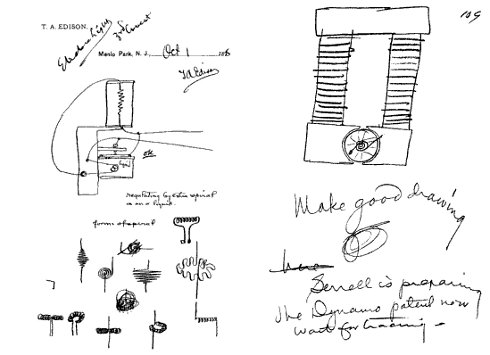 T. A. EDISON.
Electric Light
Menlo Park, N. J., Oct 1 187
TAEdison
regulating by extra spiral
form of spiral
109
Make good drawing
Serrell is preparing
the Dynamo patent now
wait for tracing -